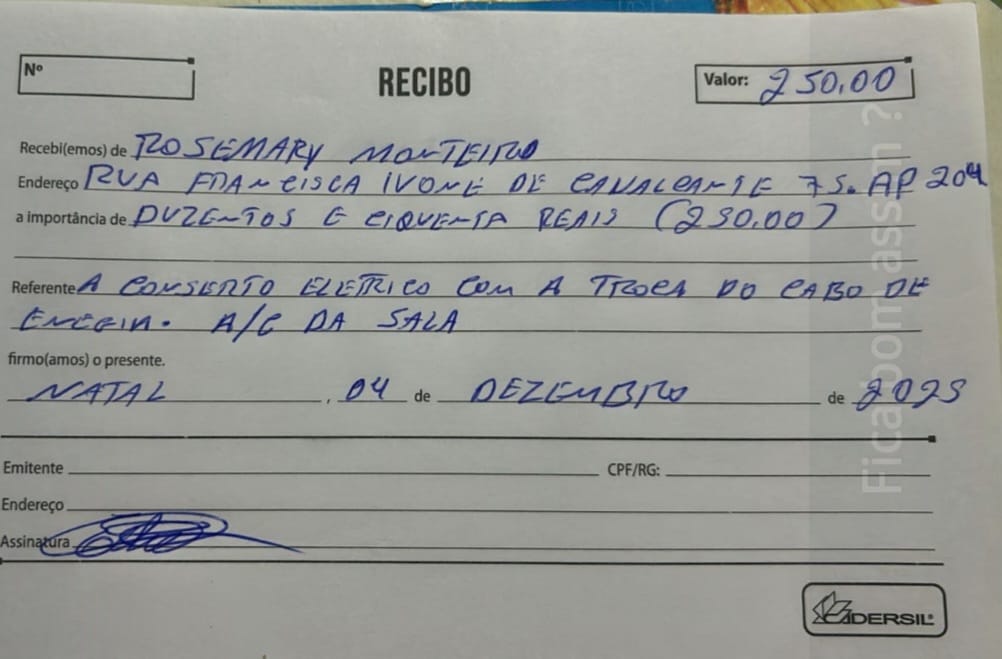 Nº
RECIBO
Valor: 250,00
Recebi(emos) de ROSEMARY MONTEIRO
Endereço RUA FRANCISCA IVONE DE CAVALCANTE 75. AP 204
a importância de DUZENTOS E CIQUENTA REAIS (250.00)
Referente A CONSERTO ELETRICO COM A TROCA DO CABO DE
ENEGIA. A/C DA SALA
firmo(amos) o presente.
NATAL, 04 de DEZEMBRO de 2025
Emitente CPF/RG:
Endereço
Assinatura
ADERSIL
Ficabom assim ?